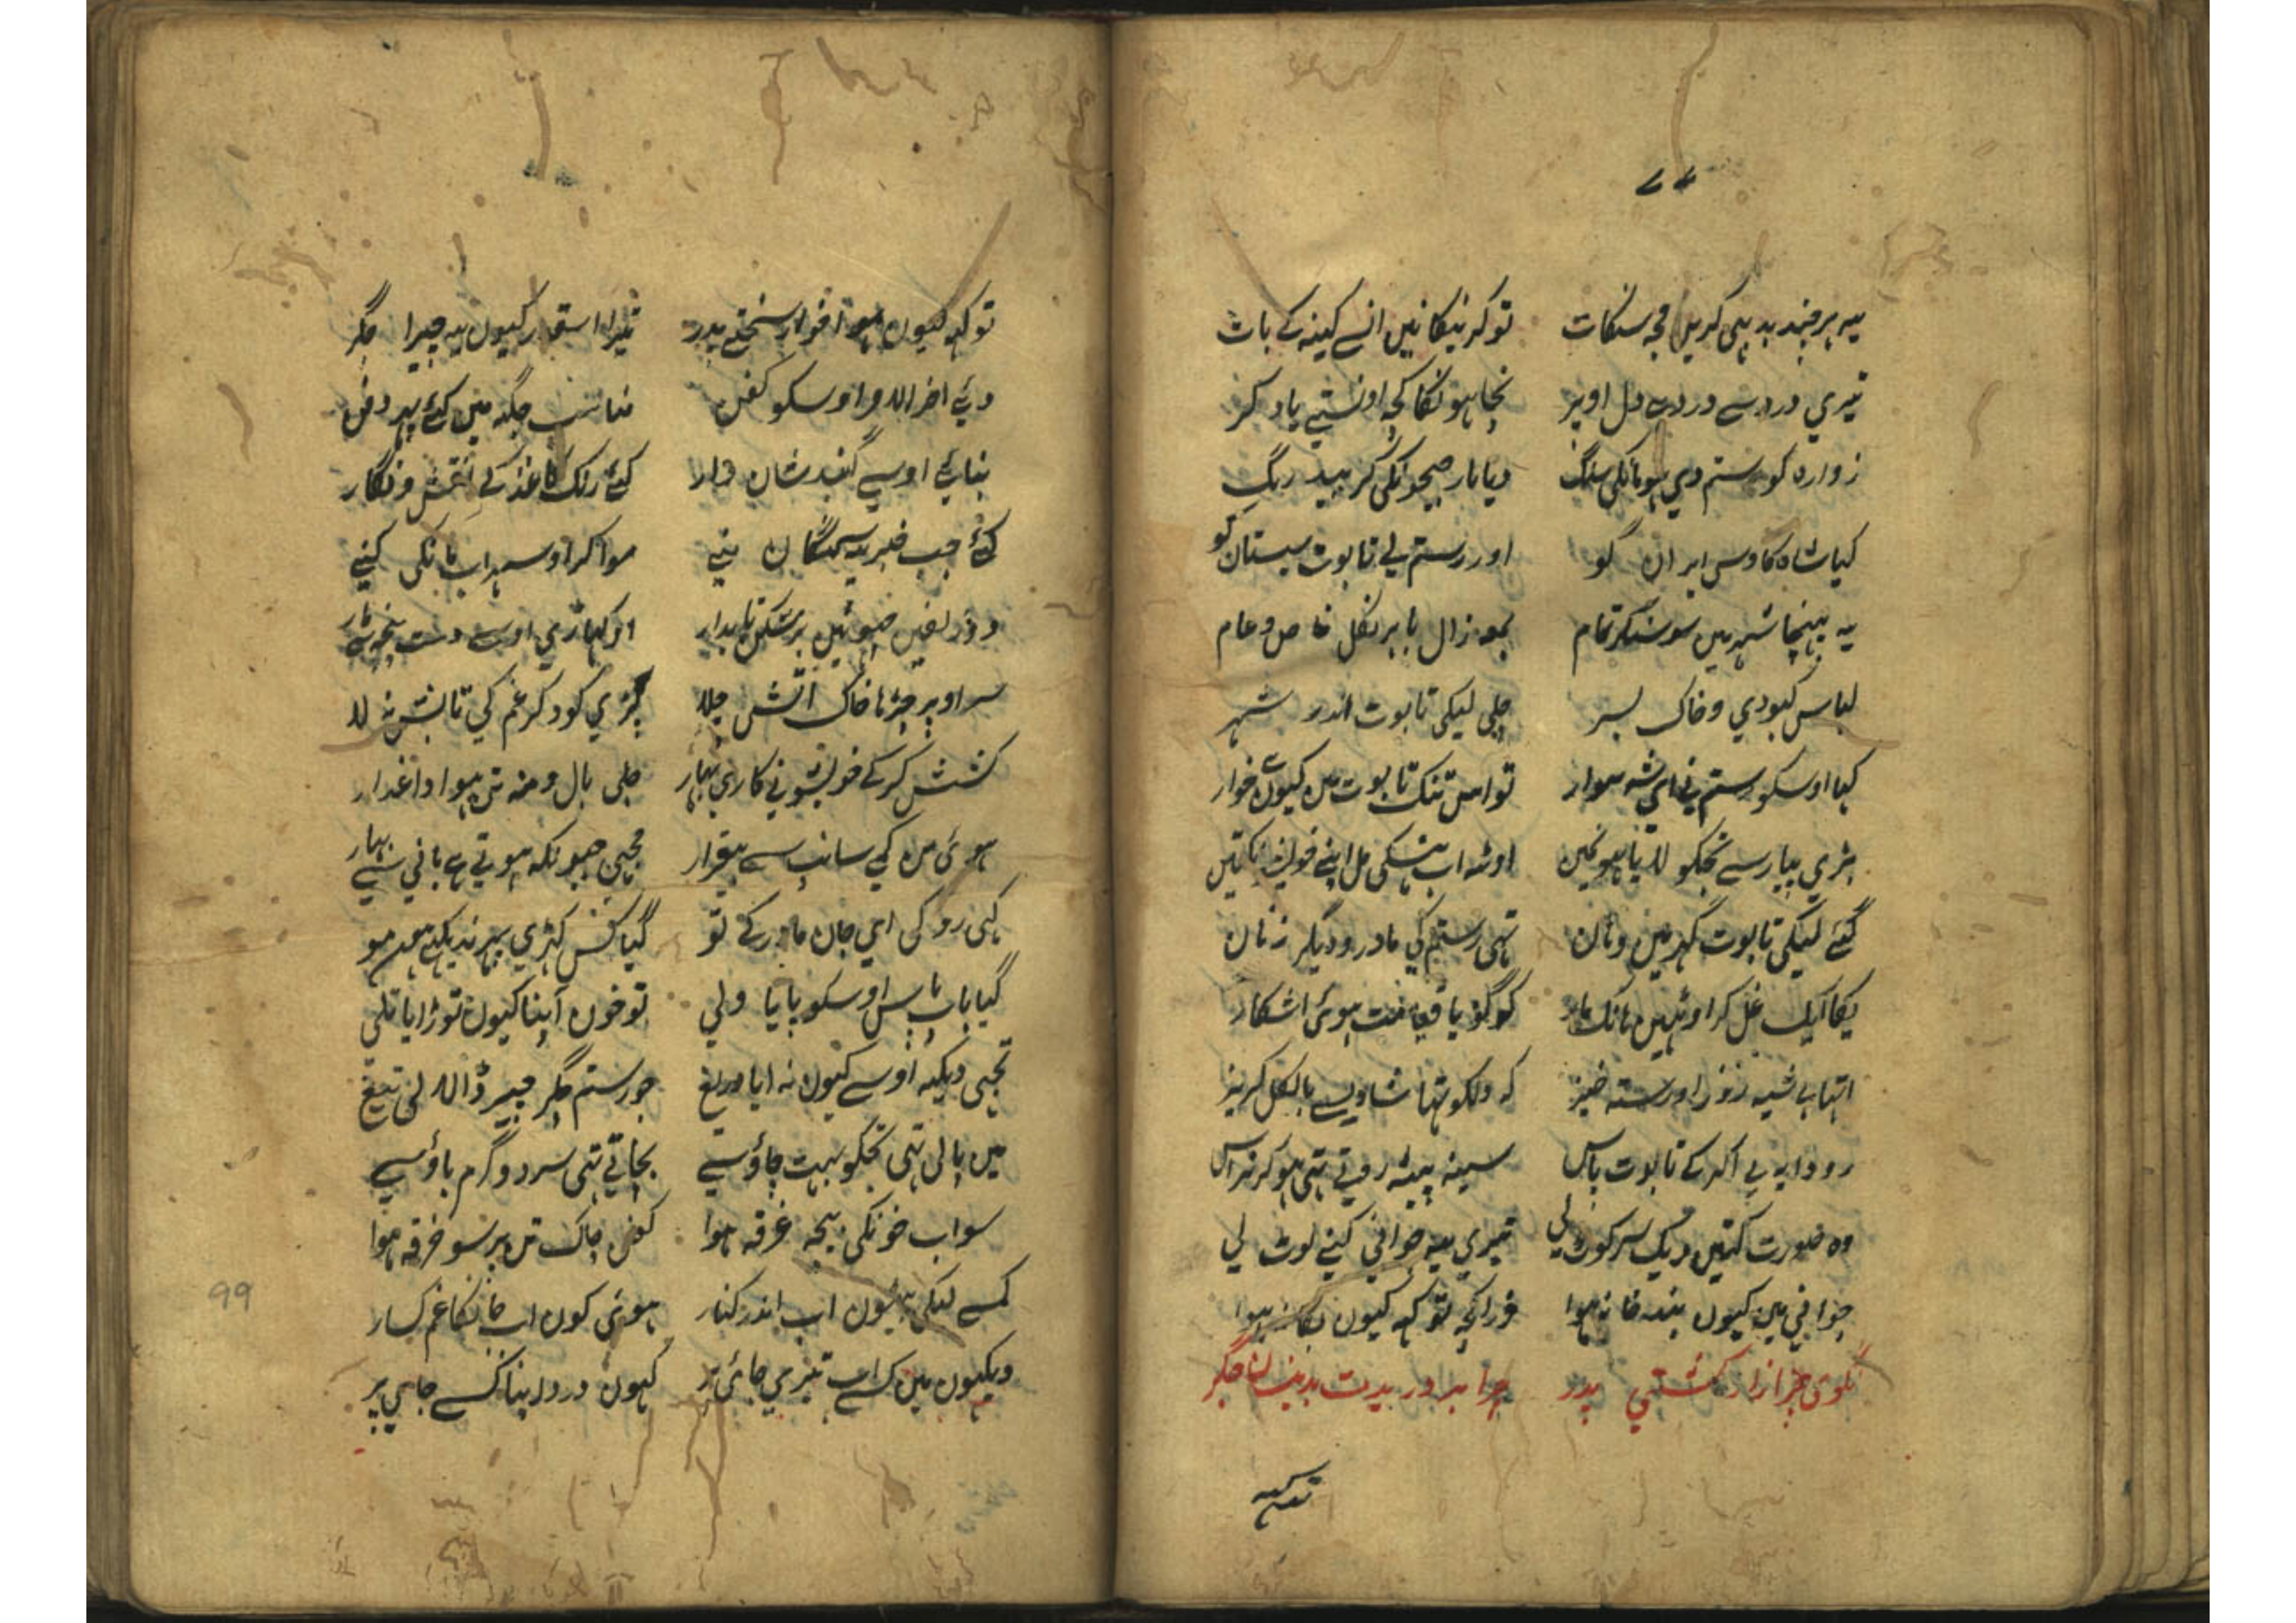 ۷۷
یہ ہر چند بد ہی کریں مجہ سنکات توکر نیکا نیں انسے کینہ کے بات
تیری درد سے درد ہے دل اوپر نجاہونکا کجہ اونستے یاد کر
زوارہ کو رستم دی ہومانکی سنگ دیا بار جیحونکی کر بید رنگ
کیا شاہ کاوس ایران کو اور رستم لی تابوت سیستان کو
یہ پہنچا شہر میں سو سنکر تمام بمو زال باہر نکل خاص و عام
لباس کبودی و خاک بسر چلی لیکی تابوت اندر شہر
کہا اوسکو رستم نی ای شہ سوار تو اس تنک تابوت میں کیوں ہے خوار
بڑی پیار سے تجکو لایا ہونمیں اوٹہ اب ہنسکی مل اپنے خویشانکتیں
گئے لیکی تابوت گہر میں وہان تہی رستم کی مادر و دیگر زنان
یکا ایک غل کر اوٹہیں بانک مار کو گویا قیامت ہوئی اشکار
اتہا بے شبہ روز اورستہ خیز کہ دلکو تہا شادی سے بالکل کریز
رودابہ بی آکر کے تابوت پاس سینہ پیٹہ روتے تہی ہوکر نراس
وہ صورت کتیں دیک سر کوٹ لی تیری یہ جوانی کنے لوٹ لی
جوانی میں کیوں بندہ خانہ ہوا ذرا کچہ تو کہ کیوں بکانہ ہوا
نگوی چرا زار کشتی پدر چرا بر دریدت بدینسان جگر
تو کہہ
تو کہ کیوں ہوا خوار سختے پدر تیرا اسقدر کیوں یہ چیرا جگر
دئے اخر الامر اوسکو کفن مناسب جگہ میں کئے پہر دفن
بنائے اوسپے گنبد شان دار کئے رنک کاغذ کے نقش و نگار
کئے جب خبر یہ سمنگان منے موا کر او سہراب مانکی کنے
دو زلفیں جو تہیں پر شکن تابدار اوکہاڑی اوسے دست پنجہ سے مار
سر اوپر چڑہا خاک آتش جلا پڑی کود کر غم کی تابش نہ لا
کشش کر کے خویشو نی کاری بہار جلی بال و منہ تن ہوا داغدار
ہوئی من کی سانپ سے بیقرار مچہی جیونکہ ہوتی ہے پانی سے بہار
کہی رو کی ای جان مادر کے تو گیا کس کہڑی پہر ندیکہے مون مو
گیا باپ پاس اوسکو پایا ولی تو خون آپنا کیوں توڑایا تلی
تجہی دیکہہ اوسے کیوں نہ ایا دریغ جو رستم جگر چیر ڈالا لی تیغ
میں پالی تہی تجکو بہت چاؤ سے بچاتی تہی سرد و گرم باؤ سے
سو اب خونکی بیچہ غرقہ ہوا کفن چاک تن پر سو خرقہ ہوا
کسے لیکی بیٹہوں اب اندر کنار ہوئی کون اب جانکا غم کسار
دیکہوں میں کسے اب تیری جائی پر کہوں درد اپنا کسے جاہی پر
99